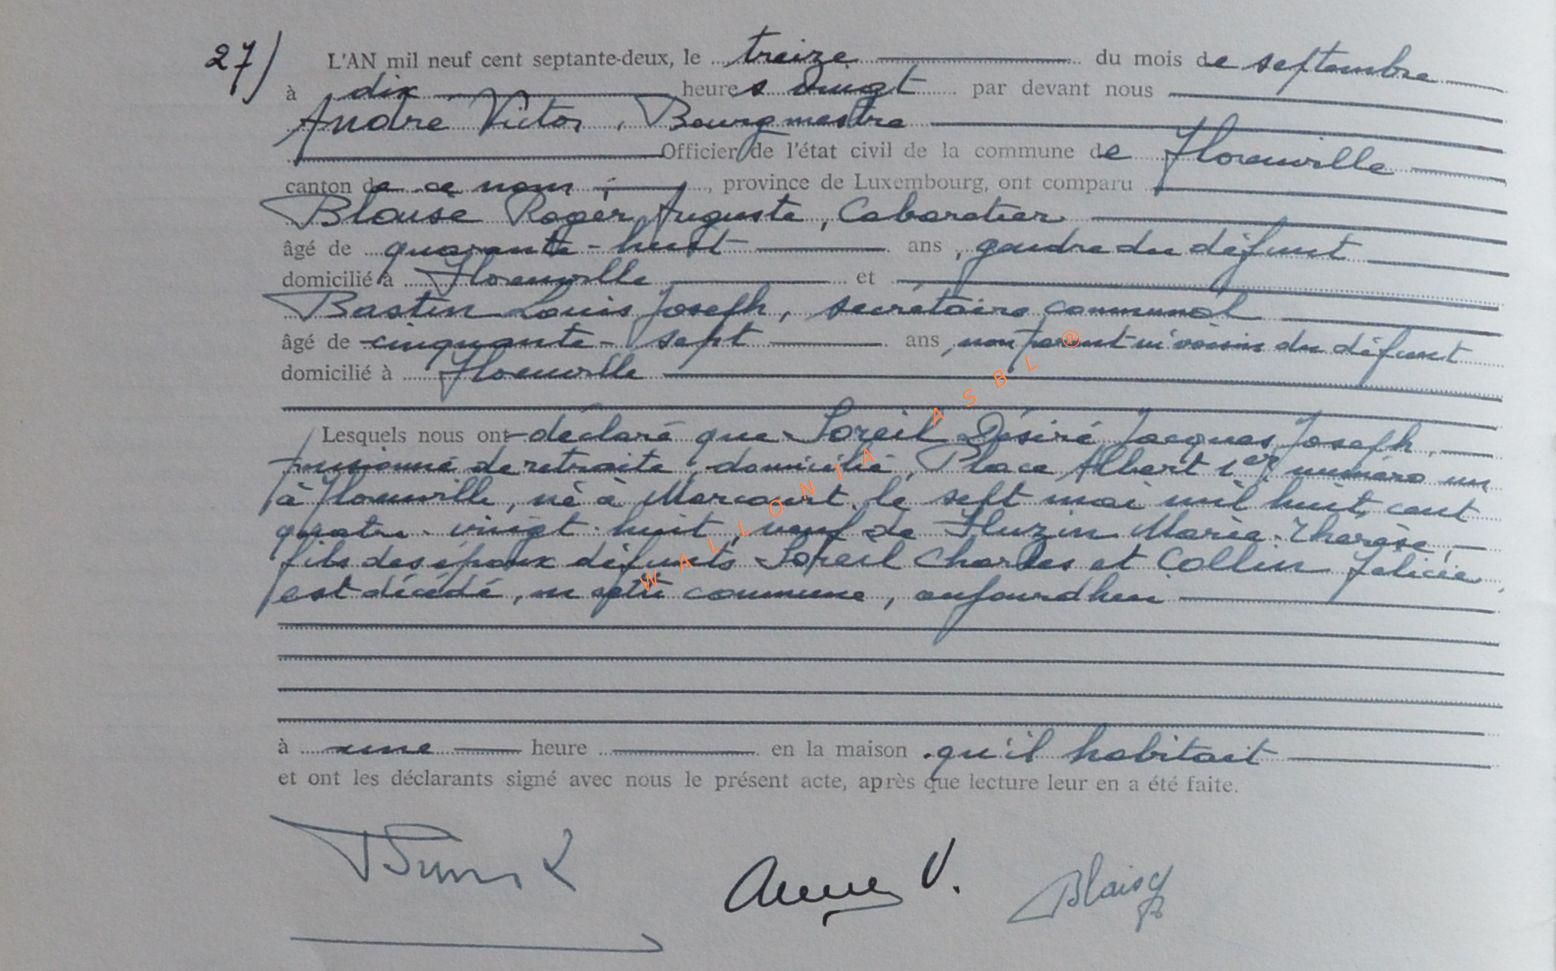 27) L'AN mil neuf cent septante-deux, le treize du mois de septembre
à dix heures vingt par devant nous
André Victor, Bourgmestre
Officier de l'état civil de la commune de Florenville
canton de ce nom, province de Luxembourg, ont comparu
Roger Auguste, Cabaretier
âgé de quarante-huit ans, gendre du défunt
domicilié à Florenville et
Bastin Louis Joseph, secrétaire communal
âgé de cinquante-sept ans, non parent ni voisin du défunt
domicilié à Florenville
Lesquels nous ont déclaré que Soreil Désiré Jacques Joseph,
pensionné de retraite, domicilié, Place Albert 1er numéro un
à Florenville, né à Marcourt, le sept mai mil huit cent
quatre-vingt-huit, veuf de Fluzin Marie-Thérèse,
fils des époux défunts Soreil Charles et Collin Felicie,
est décédé, en notre commune, aujourdhui
à une heure en la maison qu'il habitait
et ont les déclarants signé avec nous le présent acte, après que lecture leur en a été faite.
V.
WALLONIA ASBL ®